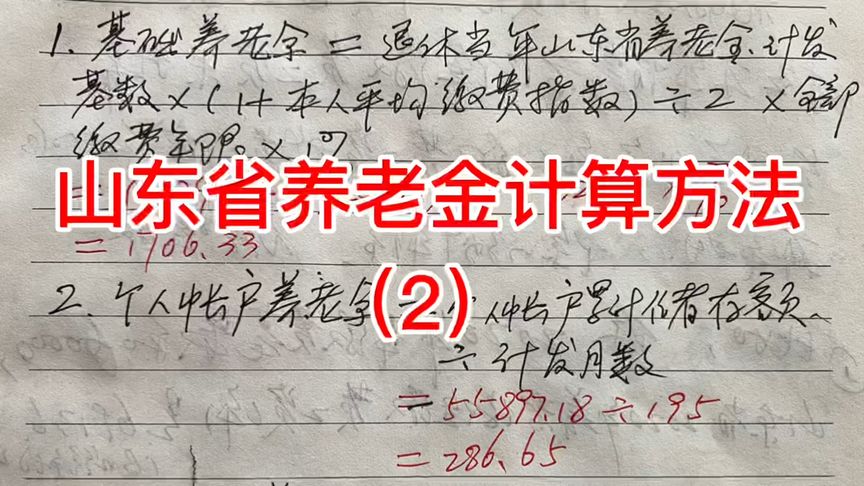 1. 基础养老金 = 退休当年山东省养老金计发
基数×(1+本人平均缴费指数)÷2×全部
缴费年限×1%
山东省养老金计算方法
=
= 1706.33
(2)
2. 个人帐户养老金 = 个人帐户累计储存额
÷计发月数
= 55897.18÷195
= 286.65